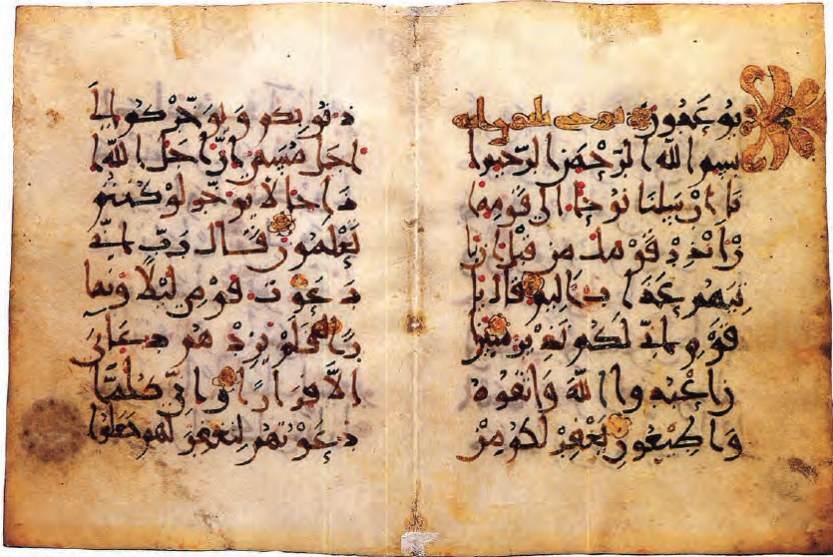 يوعدون نوح
بسم الله الرحمن الرحيم ا
نا ارسلنا نوحا الى قومه ا
ن انذر قومك من قبل ان يا
تيهم عذاب اليم قال يا
قوم اني لكم نذير مبين ا
ن اعبدوا الله واتقوه
واطيعون يغفر لكم من
ذنوبكم ويؤخركم الى
اجل مسمى ان اجل الله ا
ذا جا لا يؤخر لو كنتم
تعلمون قال رب اني
دعوت قومي ليلا ونها
را فلم يزدهم دعاي
الا فرارا واني كلما
دعوتهم لتغفر لهم جعلوا